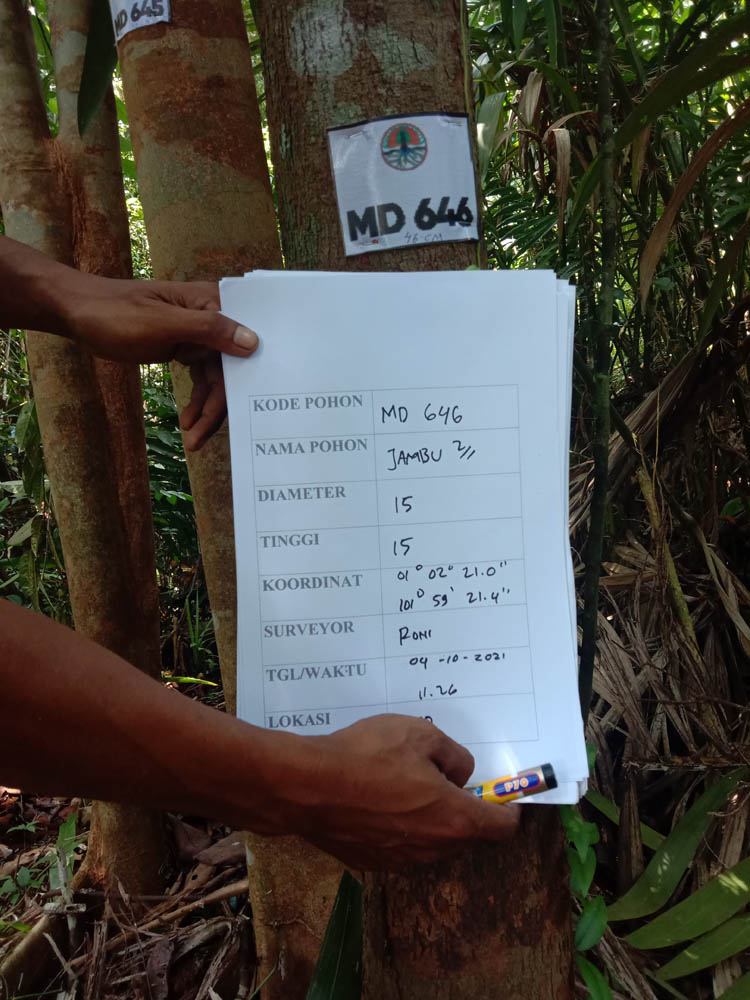 MD 645
MD 646
46 CM
KODE POHON MD 646
NAMA POHON JAMBU 2//
DIAMETER 15
TINGGI 15
KOORDINAT 01° 02° 21.0"
101° 59' 21.4"
SURVEYOR RONI
TGL/WAKTU 04-10-2021
11.26
LOKASI
P70